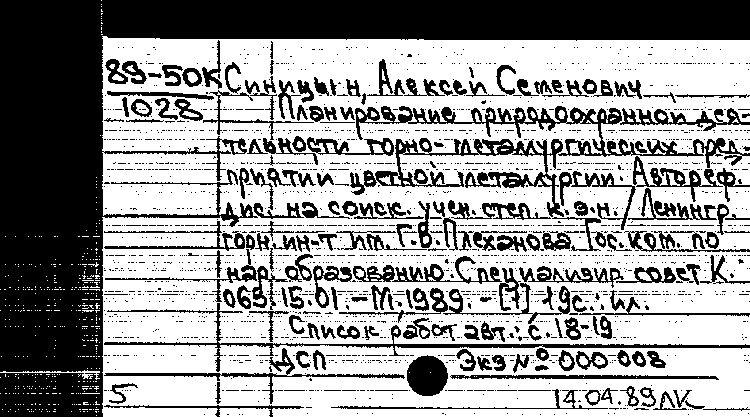 89-50К Синицын, Алексей Семенович
1028 Планирование природоохранной дея-
тельности горно-металлургических пред-
приятий цветной металлургии: Автореф.
дис. на соиск. учен. степ. к.э.н. / Ленингр.
горн. ин-т им. Г.В. Плеханова. Гос. ком. по
нар. образованию. Специализир. совет К.
063.15.01. - М. 1989. - [7] 19с.: ил.
Список работ авт.: с. 18-19
ДСП Экз № 000 008
5 14.04.89 ЛК